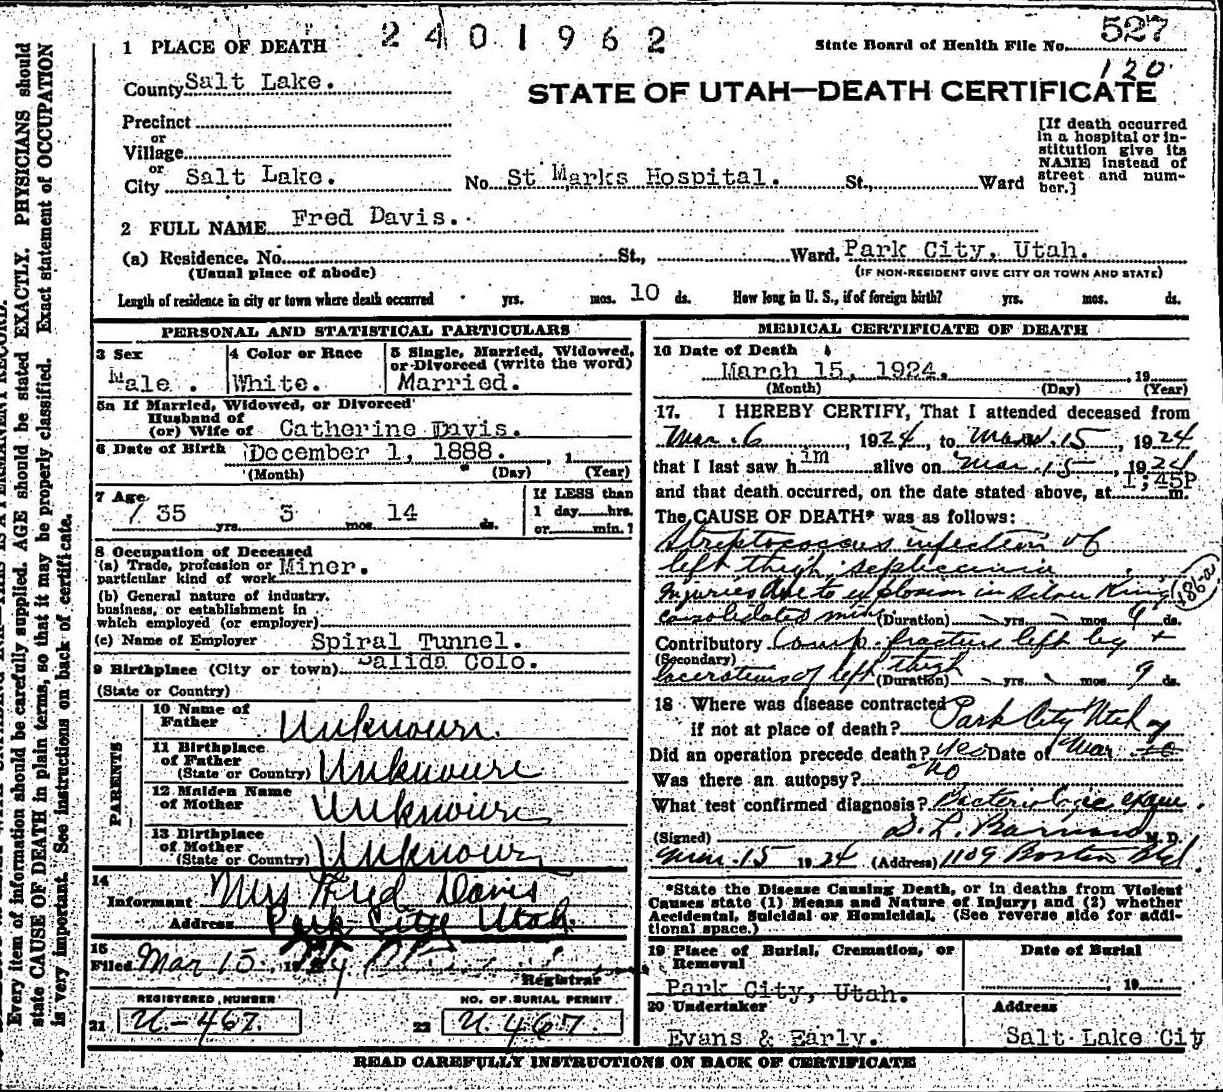 Every item of information should be carefully supplied. AGE should be stated EXACTLY. PHYSICIANS should
state CAUSE OF DEATH in plain terms, so that it may be properly classified. Exact statement of OCCUPATION
is very important. See instructions on back of certificate.
2401962
State Board of Health File No. 527
120
1 PLACE OF DEATH
County Salt Lake.
STATE OF UTAH—DEATH CERTIFICATE
Precinct
or
Village
or
City Salt Lake. No. St Marks Hospital. St., Ward
[If death occurred
in a hospital or in-
stitution give its
NAME instead of
street and num-
ber.]
2 FULL NAME Fred Davis.
(a) Residence. No. St., Ward. Park City, Utah.
(Usual place of abode) (IF NON-RESIDENT GIVE CITY OR TOWN AND STATE)
Length of residence in city or town where death occurred yrs. mos. 10 ds. How long in U. S., if of foreign birth? yrs. mos. ds.
PERSONAL AND STATISTICAL PARTICULARS
3 Sex
Male.
4 Color or Race
White.
5 Single, Married, Widowed,
or Divorced (write the word)
Married.
5a If Married, Widowed, or Divorced
Husband of
(or) Wife of Catherine Davis.
6 Date of Birth December 1, 1888. , 1
(Month) (Day) (Year)
7 Age
35 yrs. 3 mos. 14 ds.
If LESS than
1 day hrs.
or min.?
8 Occupation of Deceased
(a) Trade, profession or
particular kind of work Miner.
(b) General nature of industry,
business, or establishment in
which employed (or employer)
(c) Name of Employer Spiral Tunnel.
9 Birthplace (City or town) Salida Colo.
(State or Country)
PARENTS
10 Name of
Father Unknown.
11 Birthplace
of Father
(State or Country) Unknown
12 Maiden Name
of Mother Unknown
13 Birthplace
of Mother
(State or Country) Unknown
14
Informant Mrs Fred Davis
Address Park City Utah.
15
Filed Mar 15, 1924
Registrar
REGISTERED NUMBER
21 U-467.
NO. OF BURIAL PERMIT
22 U.467.
MEDICAL CERTIFICATE OF DEATH
16 Date of Death
March 15, 1924. , 19
(Month) (Day) (Year)
17. I HEREBY CERTIFY, That I attended deceased from
Mar. 6 , 1924, to Mar. 15 , 1924
that I last saw him alive on Mar. 15 , 1924
and that death occurred, on the date stated above, at 1;45P m.
The CAUSE OF DEATH* was as follows:
Streptococcus infection of
left thigh septicemia
Injuries due to explosion in Silver King
Consolidated mine (Duration) yrs. mos. 9 ds.
Contributory Comp. fracture left leg +
(Secondary)
lacerations of left thigh (Duration) yrs. mos. 9 ds.
18 Where was disease contracted
if not at place of death? Park City Utah
Did an operation precede death? yes Date of Mar.
Was there an autopsy? No
What test confirmed diagnosis? Bacteriologic exam.
(Signed) M. D.
Mar. 15 1924 (Address) 1109 Boston Bld
*State the Disease Causing Death, or in deaths from Violent
Causes state (1) Means and Nature of Injury; and (2) whether
Accidental, Suicidal or Homicidal. (See reverse side for addi-
tional space.)
19 Place of Burial, Cremation, or
Removal
Park City, Utah.
Date of Burial
, 19
20 Undertaker
Evans & Early.
Address
Salt Lake City
READ CAREFULLY INSTRUCTIONS ON BACK OF CERTIFICATE